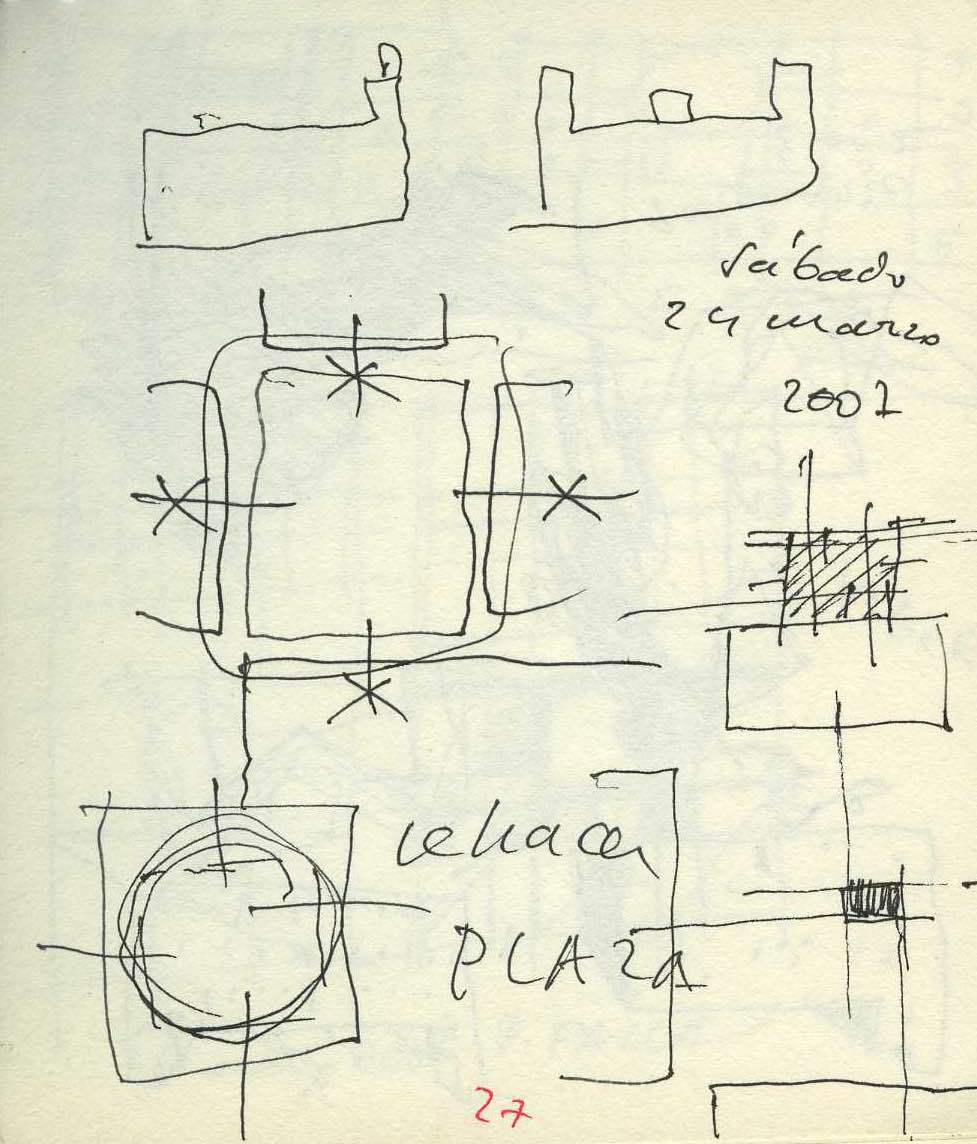 sábado
24 marzo
2007
rehacer
PLAZa
27